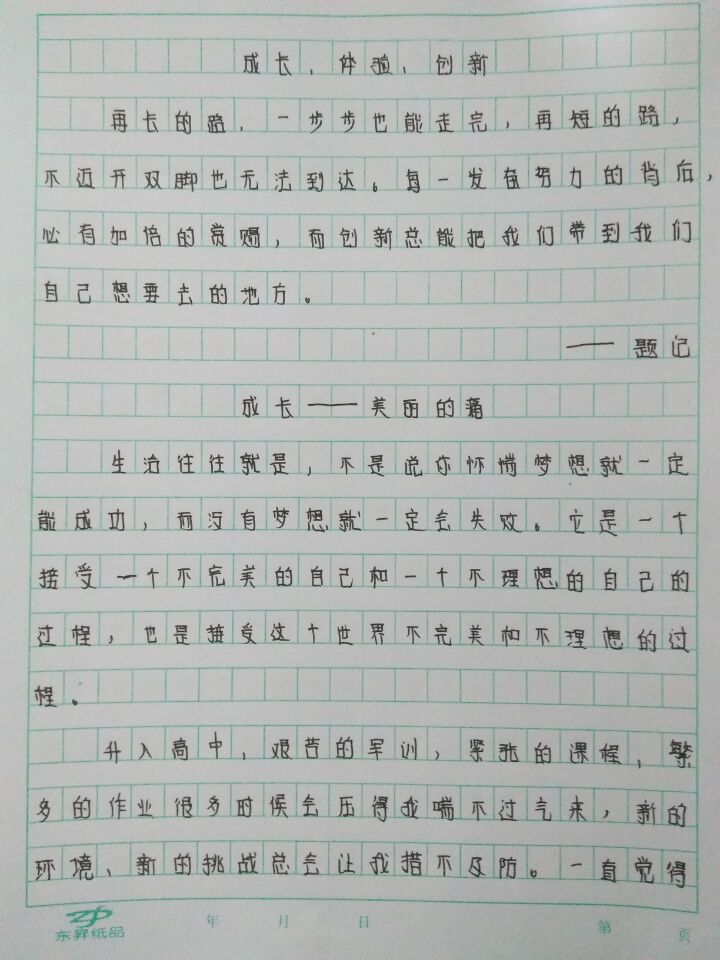 成长、体验、创新
再长的路，一步步也能走完，再短的路，
不迈开双脚也无法到达。每一发奋努力的背后，
必有加倍的赏赐，而创新总能把我们带到我们
自己想要去的地方。
——题记
成长——美丽的痛
生活往往就是，不是说你怀惴梦想就一定
能成功，而没有梦想就一定会失败。它是一个
接受一个不完美的自己和一个不理想的自己的
过程，也是接受这个世界不完美和不理想的过
程。
升入高中，艰苦的军训，紧张的课程、繁
多的作业很多时候会压得我喘不过气来，新的
环境、新的挑战总会让我措不及防。一直觉得
东昇纸品
年 月 日 第 页